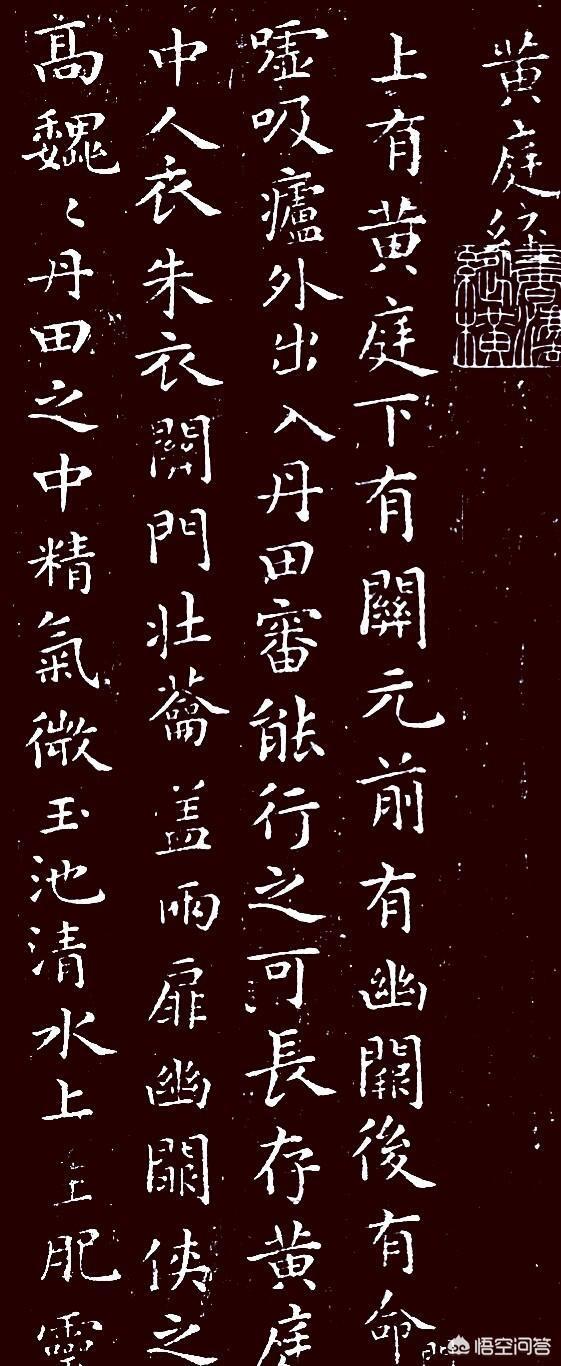 黄庭經
書法縱橫
上有黄庭下有關元前有幽闕後有命
嘘吸廬外出入丹田審能行之可長存黄庭
中人衣朱衣關門壯蘥盖兩扉幽闕俠之
高魏〻丹田之中精氣微玉池清水上生肥靈
悟空问答